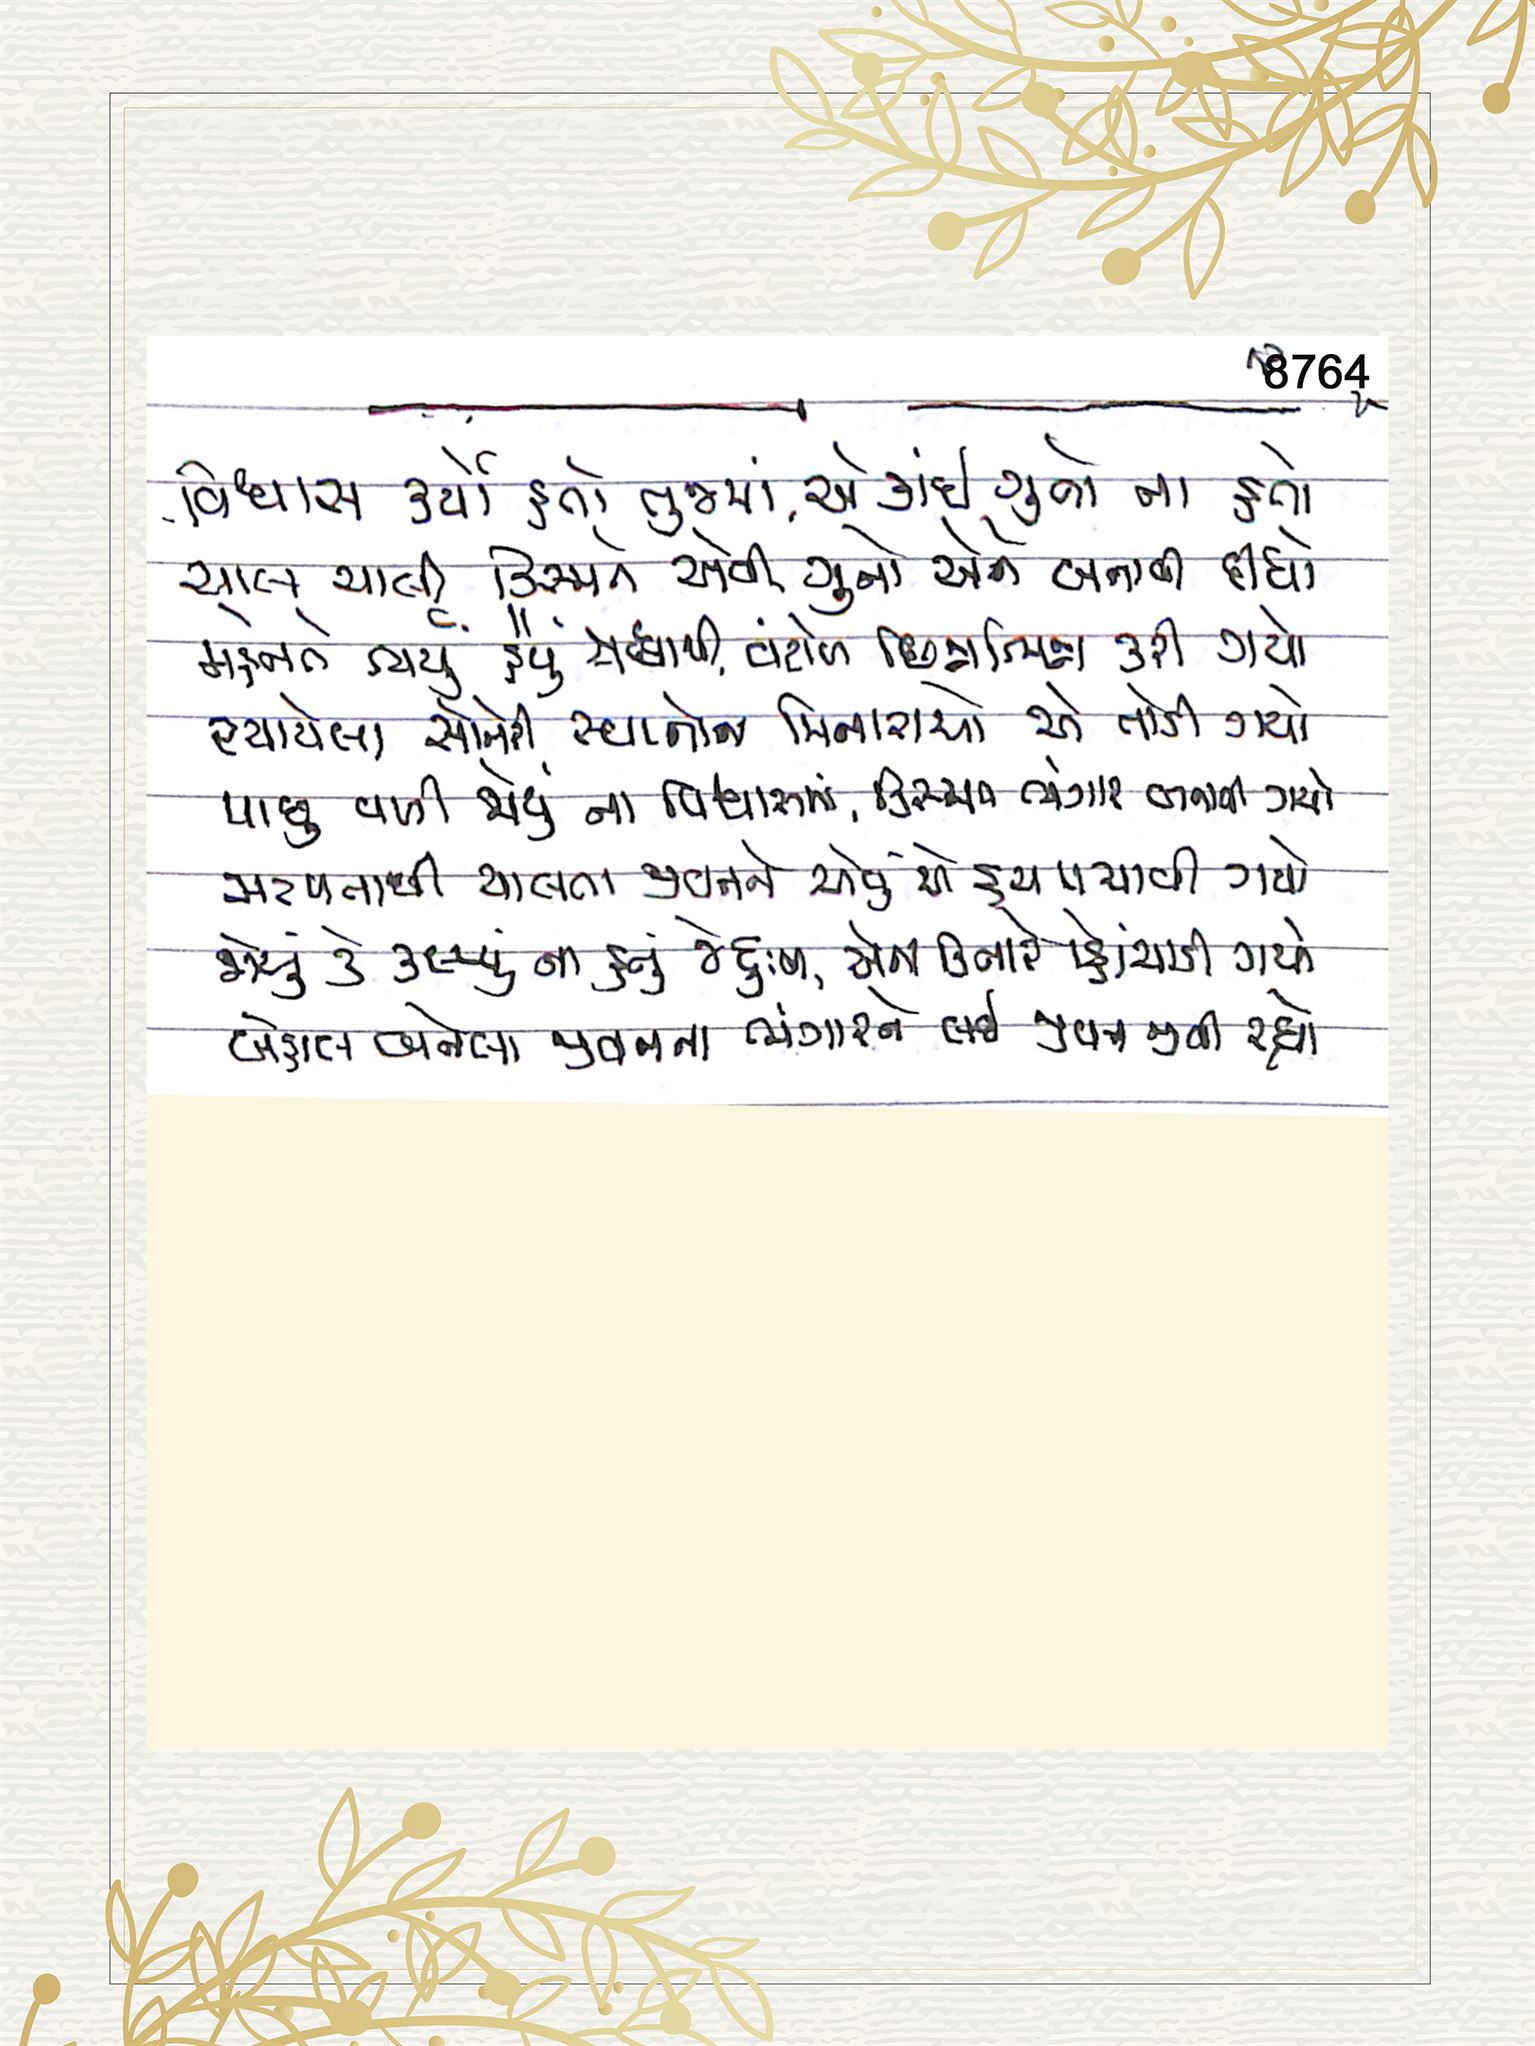 8764
વિશ્વાસ કર્યો હતો તુજમાં, એ કાંઈ ગુનો ના હતો
ચાલ ચાલી કિસ્મતે એવી ગુનો એને બનાવી દીધો
મહેનતે રચ્યું હૈયું સંધાયી, વંટોળ છિન્નભિન્ન કરી ગયો
રચાયેલા સોનેરી સ્વપ્નોના મિનારાઓ એ તોડી ગયો
પાછુ વળી જોયું ના વિશ્વાસમાં, કિસ્મત ભંગાર બનાવી ગયો
સરળતાથી ચાલતા જીવનને એવું એ હચમચાવી ગયો
જોયું કે કલ્પ્યું ના હતું જે દુઃખ, એના કિનારે પહોંચાડી ગયો
બેહાલ બનેલા જીવનના ભંગારને લઈ જીવન જીવી રહ્યો